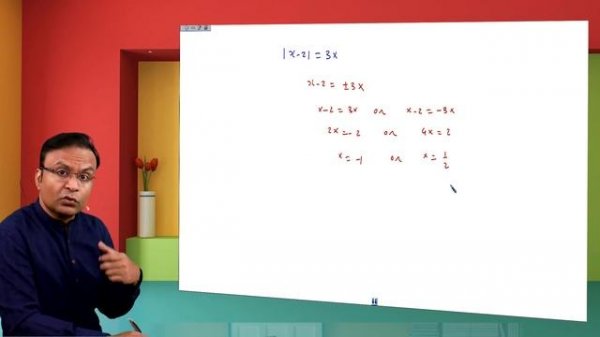 |x-2| = 3x
x-2 = ±3x
x-2 = 3x or x-2 = -3x
2x = -2 or 4x = 2
x = -1 or x = 1/2